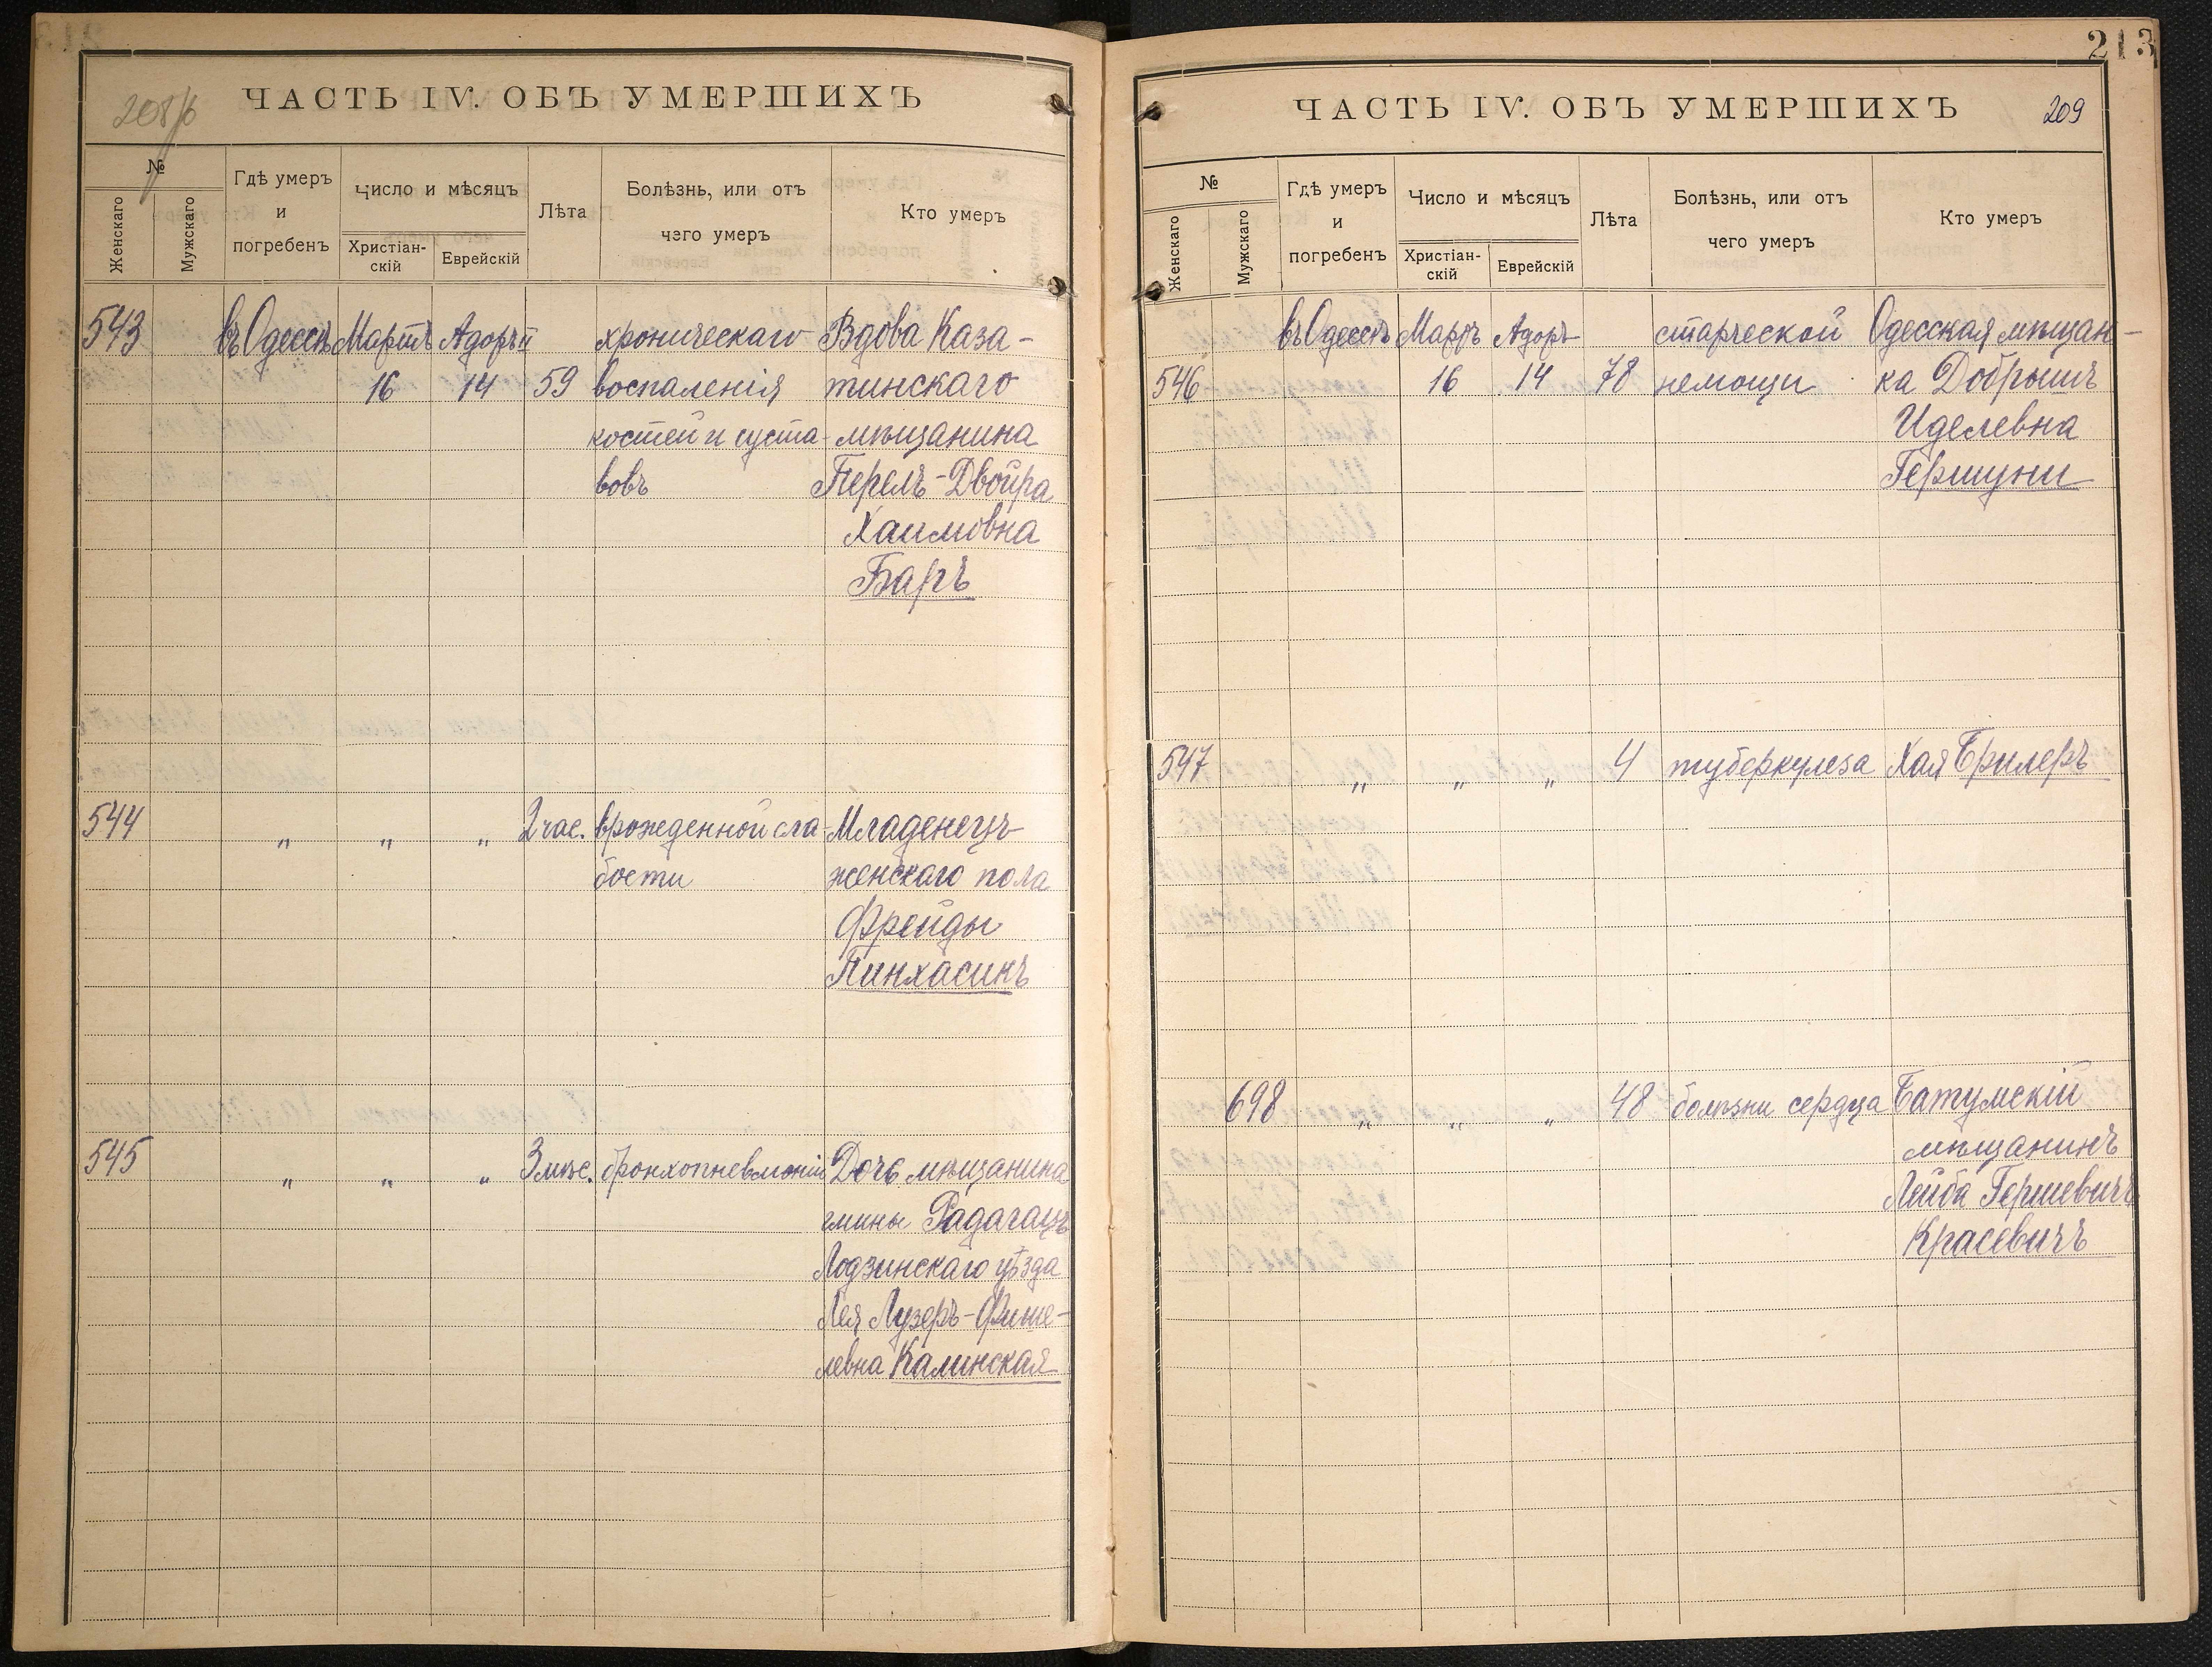 208/б
ЧАСТЬ IV. ОБЪ УМЕРШИХЪ
№
Женскаго
Мужскаго
Гдѣ умеръ и погребенъ
Число и мѣсяцъ
Христіан-скій
Еврейскій
Лѣта
Болѣзнь, или отъ чего умеръ
Кто умеръ
543 въ Одессѣ Мартъ Адоръ II хроническаго Вдова Каза-
16 14 59 воспаленія тинскаго
костей и суста- мѣщанина
вовъ Перелъ-Двойра
Хаимовна
Баръ
544 " " " 2 час. врожденной сла- Младенецъ
бости женскаго пола
Фрейды
Пинхасикъ
545 " " " 3 мѣс. бронхопневмоніи Дочь мѣщанина
гмины Радагацъ
Лодзинскаго уѣзда
Лея Лузеръ-Фише-
левна Калинская
213
ЧАСТЬ IV. ОБЪ УМЕРШИХЪ 209
№
Женскаго
Мужскаго
Гдѣ умеръ и погребенъ
Число и мѣсяцъ
Христіан-скій
Еврейскій
Лѣта
Болѣзнь, или отъ чего умеръ
Кто умеръ
въ Одессѣ Мартъ Адоръ старческой Одесская мѣщан-
546 16 14 78 немощи ка Добрышъ
Иделевна
Гершуни
547 " " " 4 туберкулеза Хая Брилеръ
698 " " " 48 болѣзни сердца Батумскій
мѣщанинъ
Лейба Гершевичъ
Красевичъ